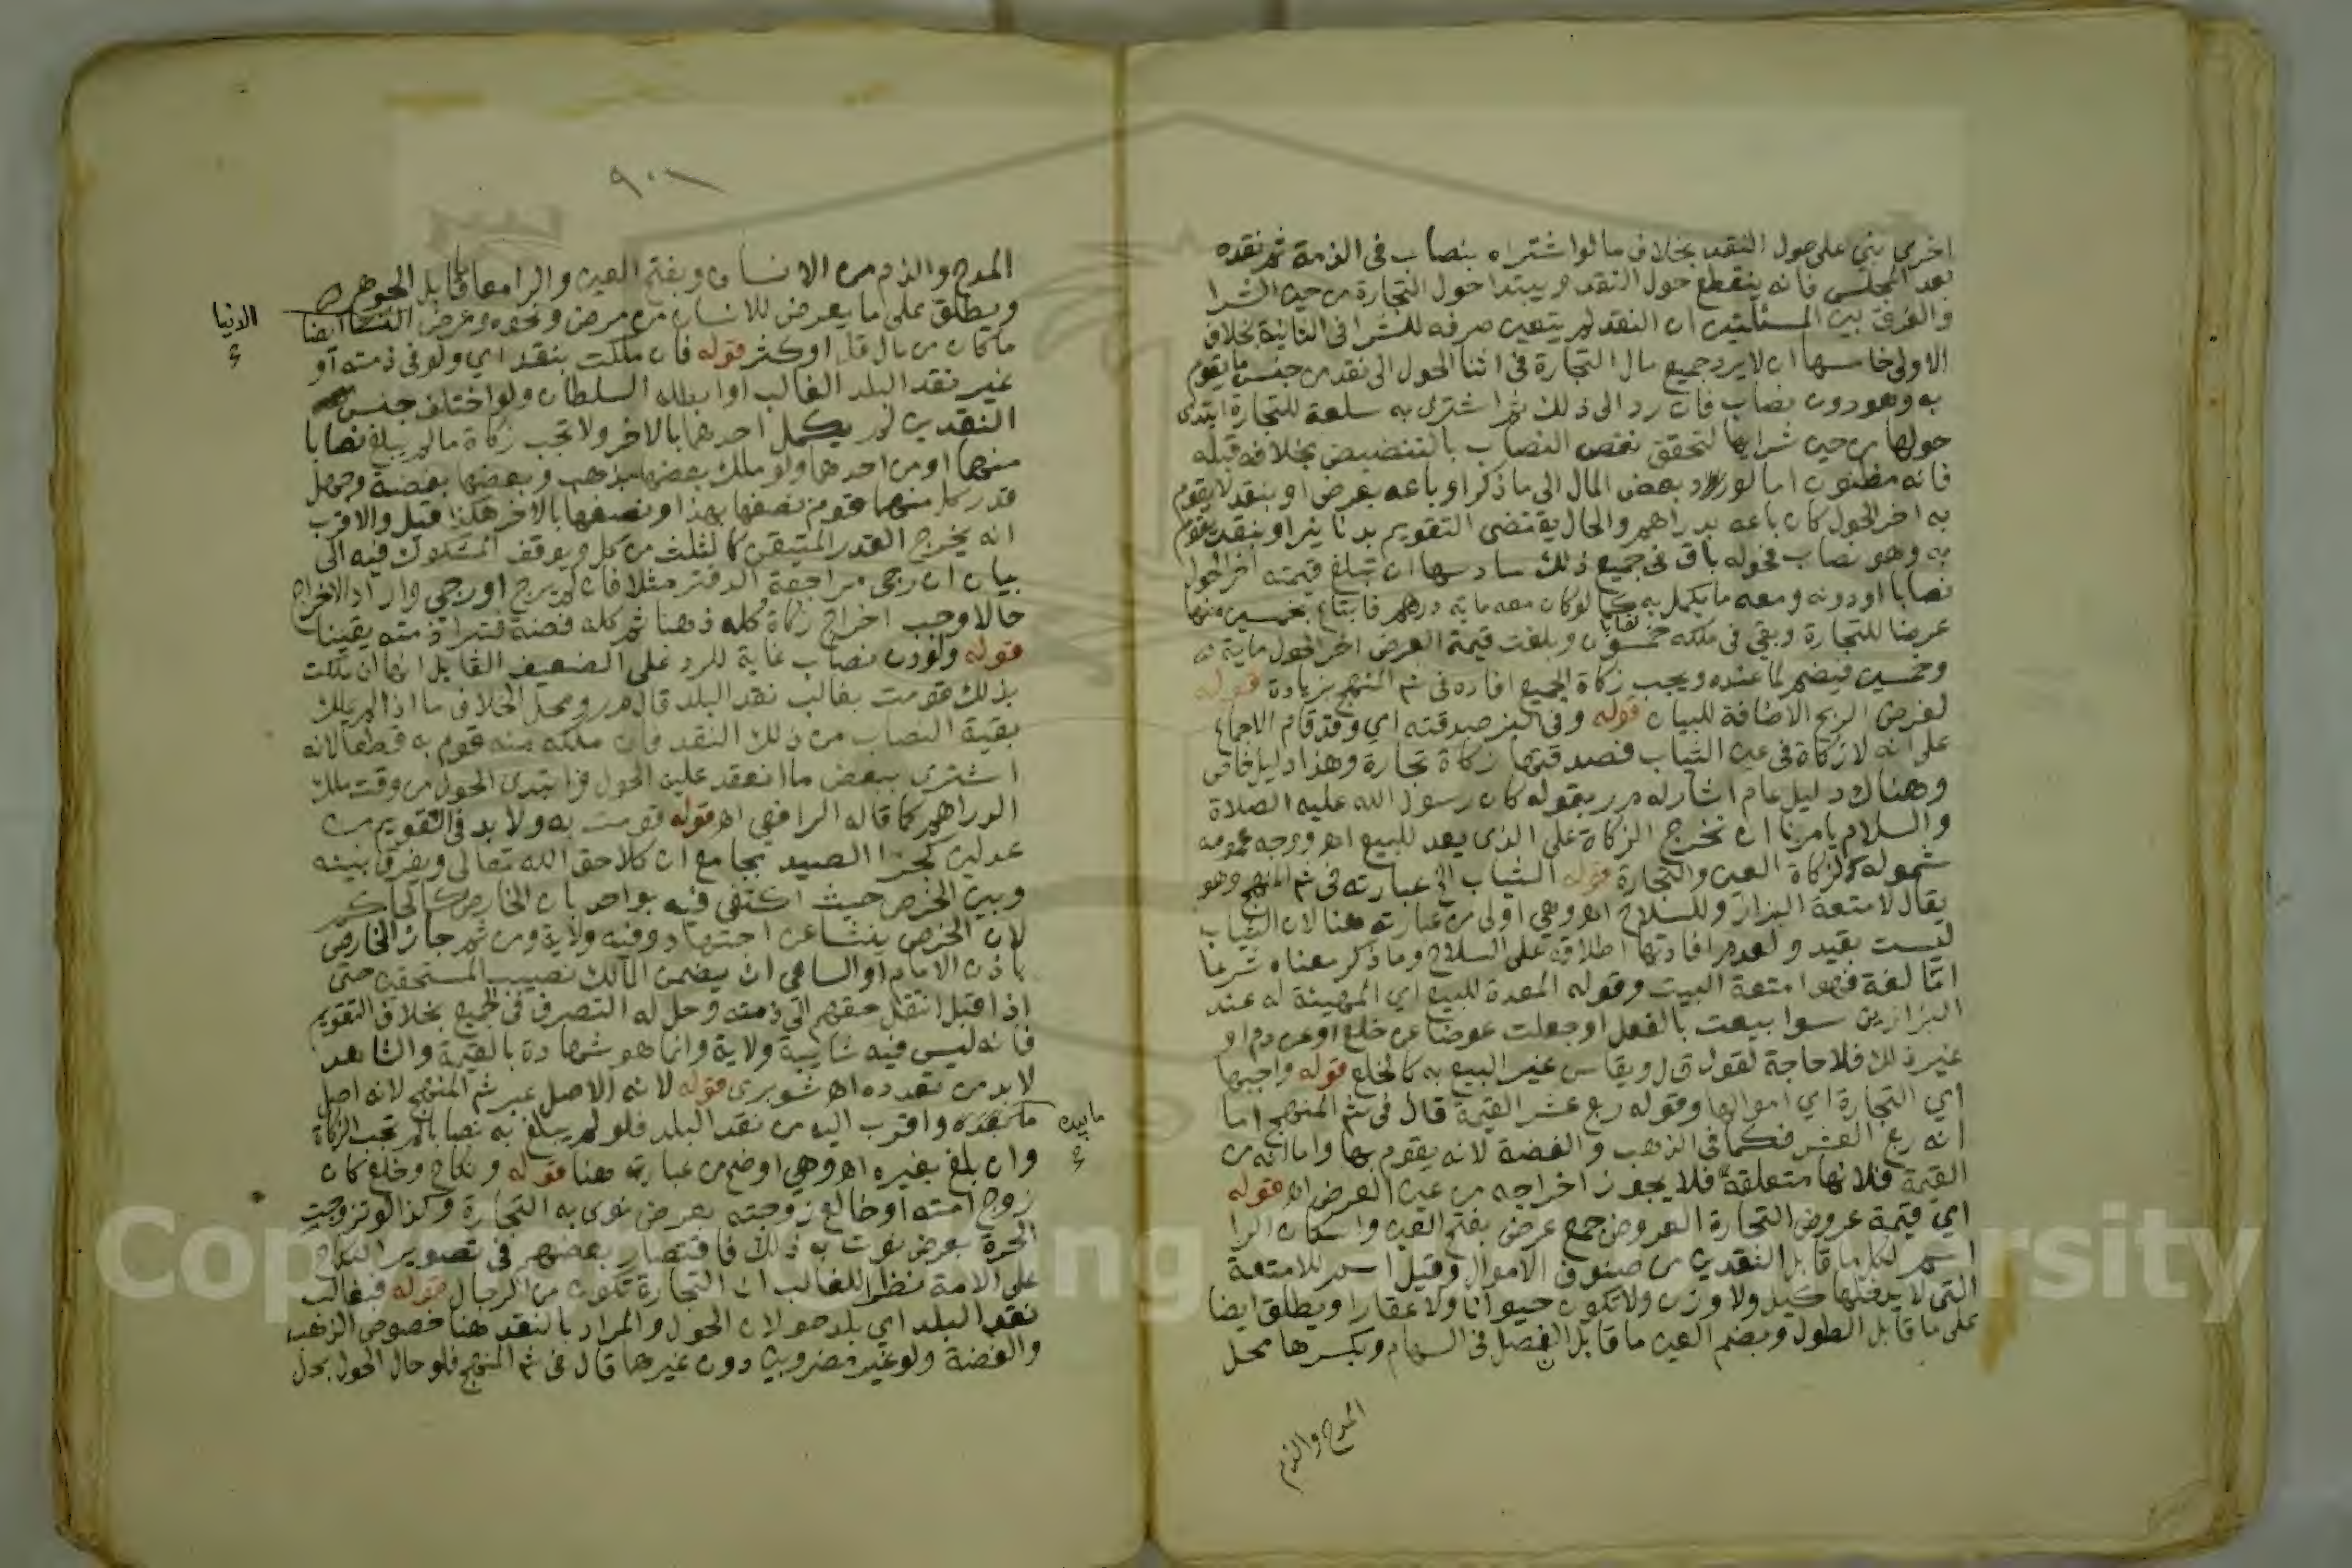 اخرى بني على حول النقد بخلاف ما لو اشتراه بنصاب في الذمة ثم نقده
بعد المجلس فانه ينقطع حول النقد ويبتدا حول التجارة من حين الشرا
والفرق بين المسئلتين ان النقد لم يتعين صرفه للشرا في الثانية بخلاف
الاولى خامسها ان لا يرد جميع مال التجارة في اثنا الحول الى نقد من جنس ما يقوم
به وهو دون نصاب فان رد الى ذلك ثم اشترى به سلعة للتجارة ابتدى
حولها من حين شرايها لتحقق نقص النصاب بالتنضيض بخلافه قبله
فانه مظنون اما لو رد بعض المال الى ما ذكر او باعه بعرض او بنقد لا يقوم
به اخر الحول كان باعه بدراهم والحال يقتضى التقويم بدنانير او بنقد يقوم
به وهو نصاب فحوله باق في جميع ذلك سادسها ان تبلغ قيمته اخر الحول
نصابا او دونه ومعه ما يكمل به كما لو كان معه ماية درهم فابتاع بخمسين منها
عرضا للتجارة وبقي في ملكه خمسون وبلغت قيمة العرض اخر الحول ماية
وخمسين فيضم لما عنده ويجب زكاة الجميع افاده في شم المنهج بزيادة قوله
لغرض الربح الاضافة للبيان قوله وفي البز صدقته اي وقد قام الاجماع
على انه لا زكاة في عين الثياب فصدقتها زكاة تجارة وهذا دليل خاص
وهناك دليل عام اشار له م ر بقوله كان رسول الله عليه الصلاة
والسلام يامرنا ان نخرج الزكاة على الذى يعد للبيع اهـ ووجه عمومه
شموله لزكاة العين والتجارة قوله الثياب الخ عبارته في شم المنهج وهو
يقال لامتعة البزاز وللسلاح اهـ وهي اولى من عبارته هنا لان الثياب
ليست بقيد ولعدم افادتها اطلاقه على السلاح وما ذكر معناه شرعا
اما لغة فهو امتعة البيت وقوله المعدة للبيع اي المهيئة له عند
البزازين سوا بيعت بالفعل او جعلت عوضا عن خلع او عن دم او
غير ذلك فلا حاجة لقول ق ل ويقاس غير البيع به كالخلع قوله واجبها
اي التجارة اي اموالها وقوله ربع عشر القيمة قال في شم المنهج اما
انه ربع العشر فكما في الذهب والفضة لانه يقوم بها واما انه من
القيمة فلانها متعلقة فلا يجوز اخراجه من عين العرض اهـ قوله
اي قيمة عروض التجارة العروض جمع عرض بفتح العين واسكان الرا
اسم لكل ما قابل النقدين من صنوف الاموال وقيل اسم للامتعة
التي لا يدخلها كيل ولا وزن ولا تكون حيوانا ولا عقارا ويطلق ايضا
على ما قابل الطول وبضم العين ما قابل النصل في السهام وبكسرها محل
المدح والذم
٩٠١
المدح والذم من الانسان وبفتح العين والرا معا ما قابل الجوهر
ويطلق على ما يعرض للانسان من مرض ونحوه وعرض ايضا
الدنيا
ما كان من مال قل او كثر قوله فان ملكت بنقد اي ولو في ذمته او
غير نقد البلد الغالب او ابطله السلطان ولو اختلف جنس
النقدين لم يكمل احدهما بالاخر ولا تجب زكاة ما لم يبلغ نصابا
منهما او من احدهما ولو ملك بعضها بذهب وبعضها بفضة وجهل
قدر كل منهما قوم نصفها بهذا ونصفها بالاخر هكذا قيل والاقرب
انه يخرج القدر المتيقن كالثلث من كل ويوقف المشكوك فيه الى
بيان ان رجى مراجعة الدفتر مثلا فان لم يرج او رجى واراد الاخراج
حالا وجب اخراج زكاة كله ذهبا ثم كله فضة فتبرا ذمته يقينا
قوله ولو دون نصاب غاية للرد على الضعيف القايل انها ان ملكت
بذلك قومت بغالب نقد البلد قال م ر ومحل الخلاف ما اذا لم يملك
بقية النصاب من ذلك النقد فان ملكه منه قوم به قطعا لانه
اشترى ببعض ما انعقد عليه الحول فابتدى الحول من وقت ملك
الدراهم كما قاله الرافعي اهـ قوله قومت به ولا بد في التقويم من
عدلين كجزا الصيد بجامع ان كلا حق الله تعالى ويفرق بينه
وبين الخرص حيث اكتفى فيه بواحد بان الخارص كالحاكم
لان الخرص ينشا عن اجتهاد وفيه ولاية ومن ثم جاز الخارص
باذن الامام او الساعي ان يضمن المالك نصيب المستحقين حتى
اذا قبل انتقل حقهم الى ذمته وحل له التصرف في الجميع بخلاف التقويم
فانه ليس فيه شايبة ولاية وانما هو شهادة بالقيمة والشاهد
لا بد من تعدده اهـ شوبرى قوله لانه الاصل عبر شم المنهج لانه اصل
ما بيده واقرب اليه من نقد البلد فلو لم يبلغ به نصابا لم تجب الزكاة
ما بيده
وان بلغ بغيره اهـ وهي اوضح من عبارته هنا قوله ونكاح وخلع كان
زوج امته او خالع زوجته بعرض نوى به التجارة وكذا لو تزوجت
الحرة بعرض نوت به ذلك فاقتصار بعضهم في تصوير النكاح
على الامة نظرا للغالب ان التجارة تكون من الرجال قوله فبغالب
نقد البلد اي بلد حولان الحول والمراد بالنقد هنا خصوص الذهب
والفضة ولو غير مضروبين دون غيرها قال في شم المنهج فلو حال الحول بمحل